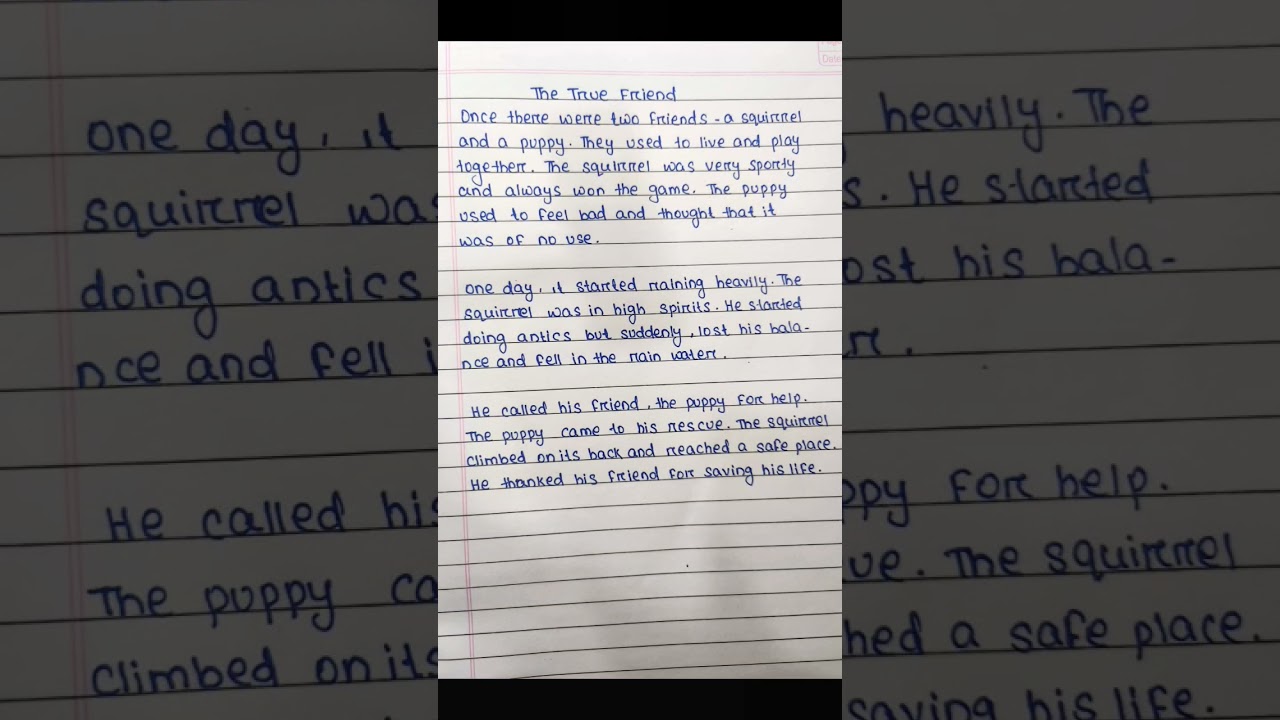 The True Friend
Once there were two friends - a squirrel
and a puppy. They used to live and play
together. The squirrel was very sporty
and always won the game. The puppy
used to feel bad and thought that it
was of no use.
one day, it started raining heavily. The
squirrel was in high spirits. He started
doing antics but suddenly, lost his bala-
nce and fell in the rain water.
He called his friend, the puppy for help.
The puppy came to his rescue. The squirrel
climbed on its back and reached a safe place.
He thanked his friend for saving his life.